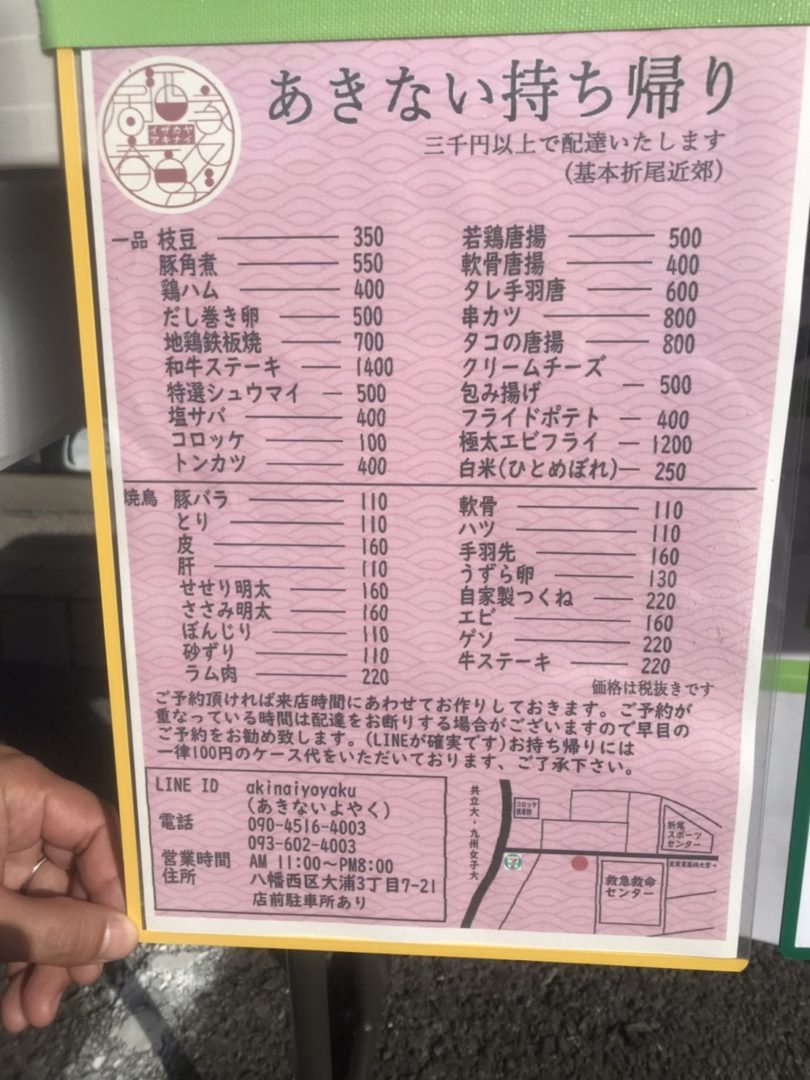 イザカヤ
アキナイ
あきない持ち帰り
三千円以上で配達いたします
(基本折尾近郊)
一品 枝豆 350
豚角煮 550
鶏ハム 400
だし巻き卵 500
地鶏鉄板焼 700
和牛ステーキ 1400
特選シュウマイ 500
塩サバ 400
コロッケ 100
トンカツ 400
若鶏唐揚 500
軟骨唐揚 400
タレ手羽唐 600
串カツ 800
タコの唐揚 800
クリームチーズ
包み揚げ 500
フライドポテト 400
極太エビフライ 1200
白米(ひとめぼれ) 250
焼鳥 豚バラ 110
とり 110
皮 160
肝 110
せせり明太 160
ささみ明太 160
ぼんじり 110
砂ずり 110
ラム肉 220
軟骨 110
ハツ 110
手羽先 160
うずら卵 130
自家製つくね 220
エビ 160
ゲソ 220
牛ステーキ 220
価格は税抜きです
ご予約頂ければ来店時間にあわせてお作りしておきます。ご予約が
重なっている時間は配達をお断りする場合がございますので早目の
ご予約をお勧め致します。(LINEが確実です)お持ち帰りには
一律100円のケース代をいただいております、ご了承下さい。
LINE ID akinaiyoyaku
(あきないよやく)
電話 090-4516-4003
093-602-4003
営業時間 AM 11:00～PM8:00
住所 八幡西区大浦3丁目7-21
店前駐車所あり
共立大・九州女子大
コロッケ
折尾
スポーツ
センター
救急救命
センター